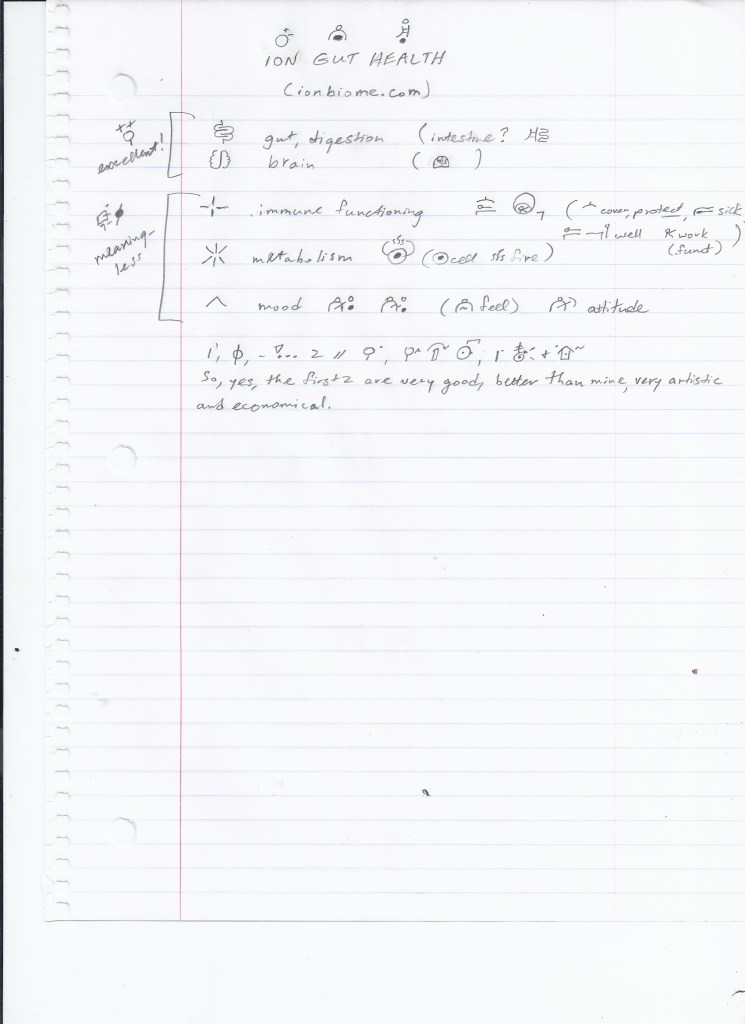 ION GUT HEALTH
(ionbiome.com)
excellent!
gut, digestion (intestine?
brain ( )
meaning-
less
immune functioning (cover, protect, sick
well work)
(funct)
metabolism (cell fire)
mood (feel) attitude
So, yes, the first 2 are very good, better than mine, very artistic
and economical.